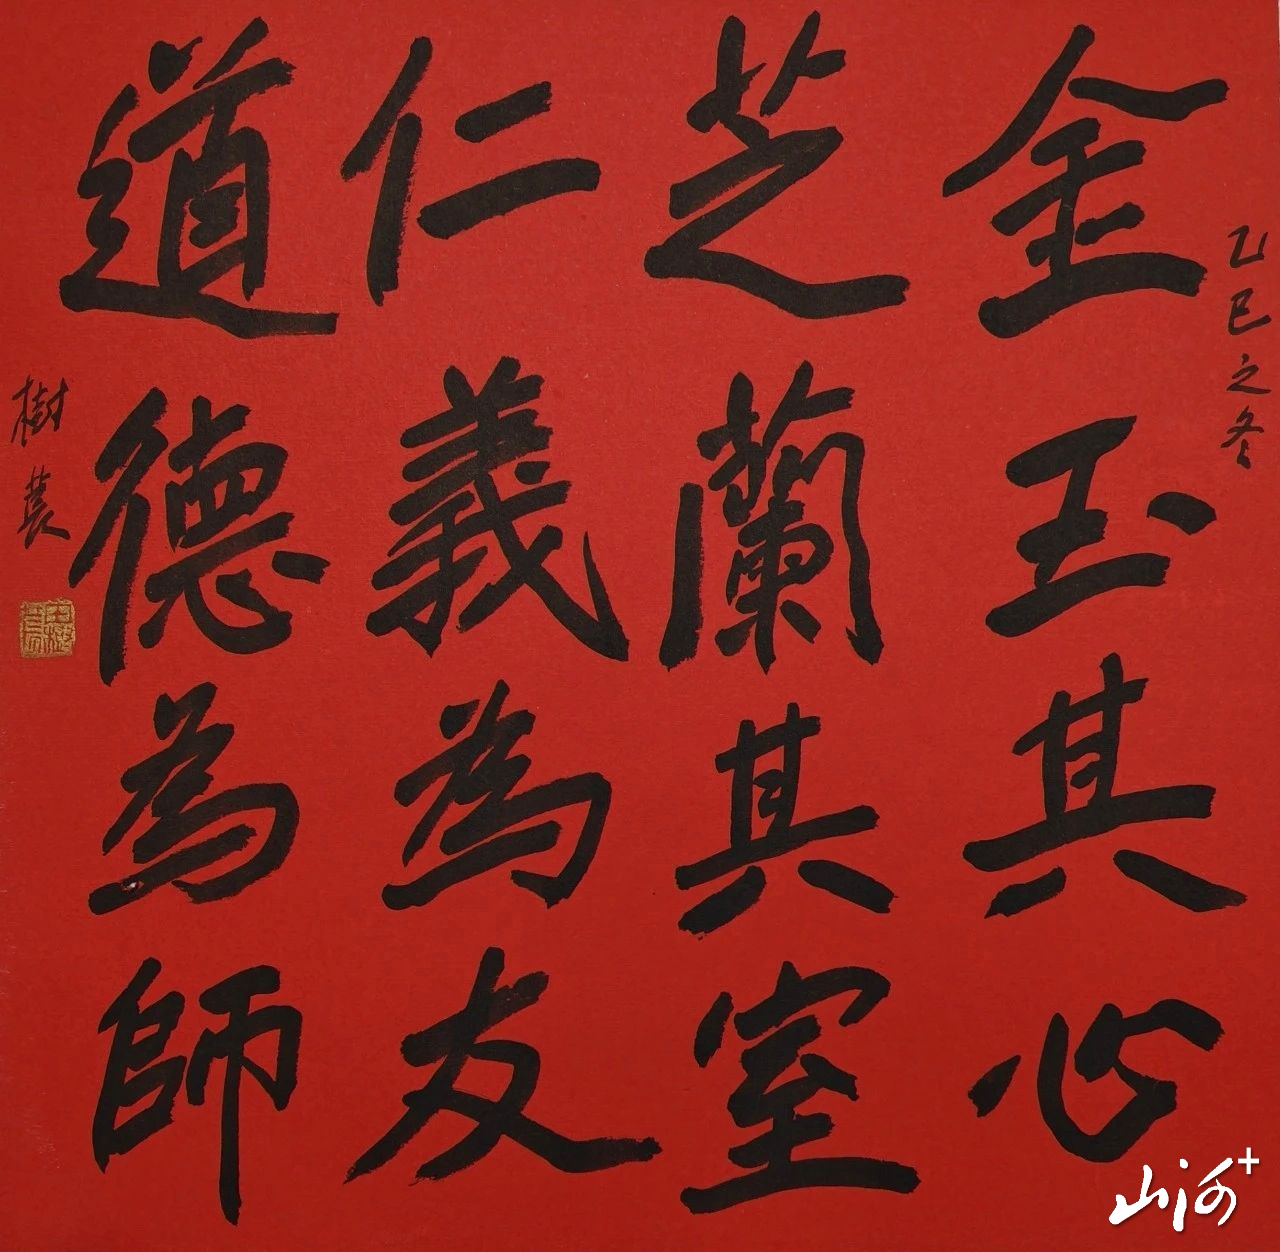 乙巳之冬
金玉其心
芝蘭其室
仁義為友
道德為師
樹
山河+